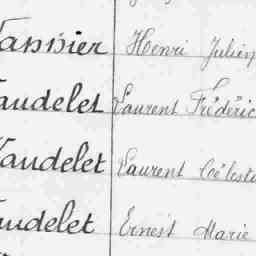 annier Henri Julien
audelet Laurent Frédéric
Vaudelet Laurent Célest
audelet Ernest Marie